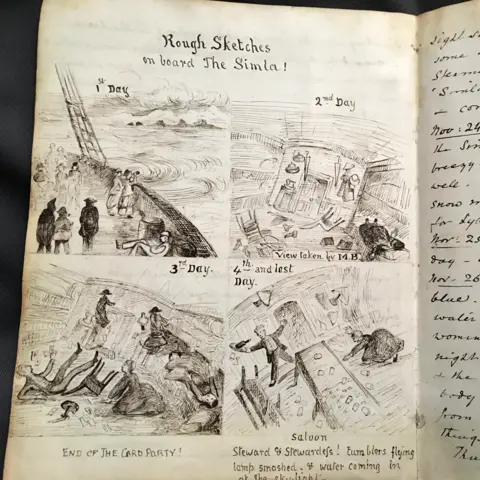 Rough Sketches
on board The Simla!
1st Day
2nd Day
View taken by M.B.
3rd Day.
4th and last
Day.
END OF THE CARD PARTY!
Saloon
Steward & Stewardess! Tumblers flying
lamp smashed. & water coming in
at the skylight.
sight
some
Steamer
"Simla
- con
Nov: 24
the Sim
breezy
well.
snow m
for Syd
Nov: 25
day -
Nov. 26
blue.
water
women
night
& the
body
from
things
Thu